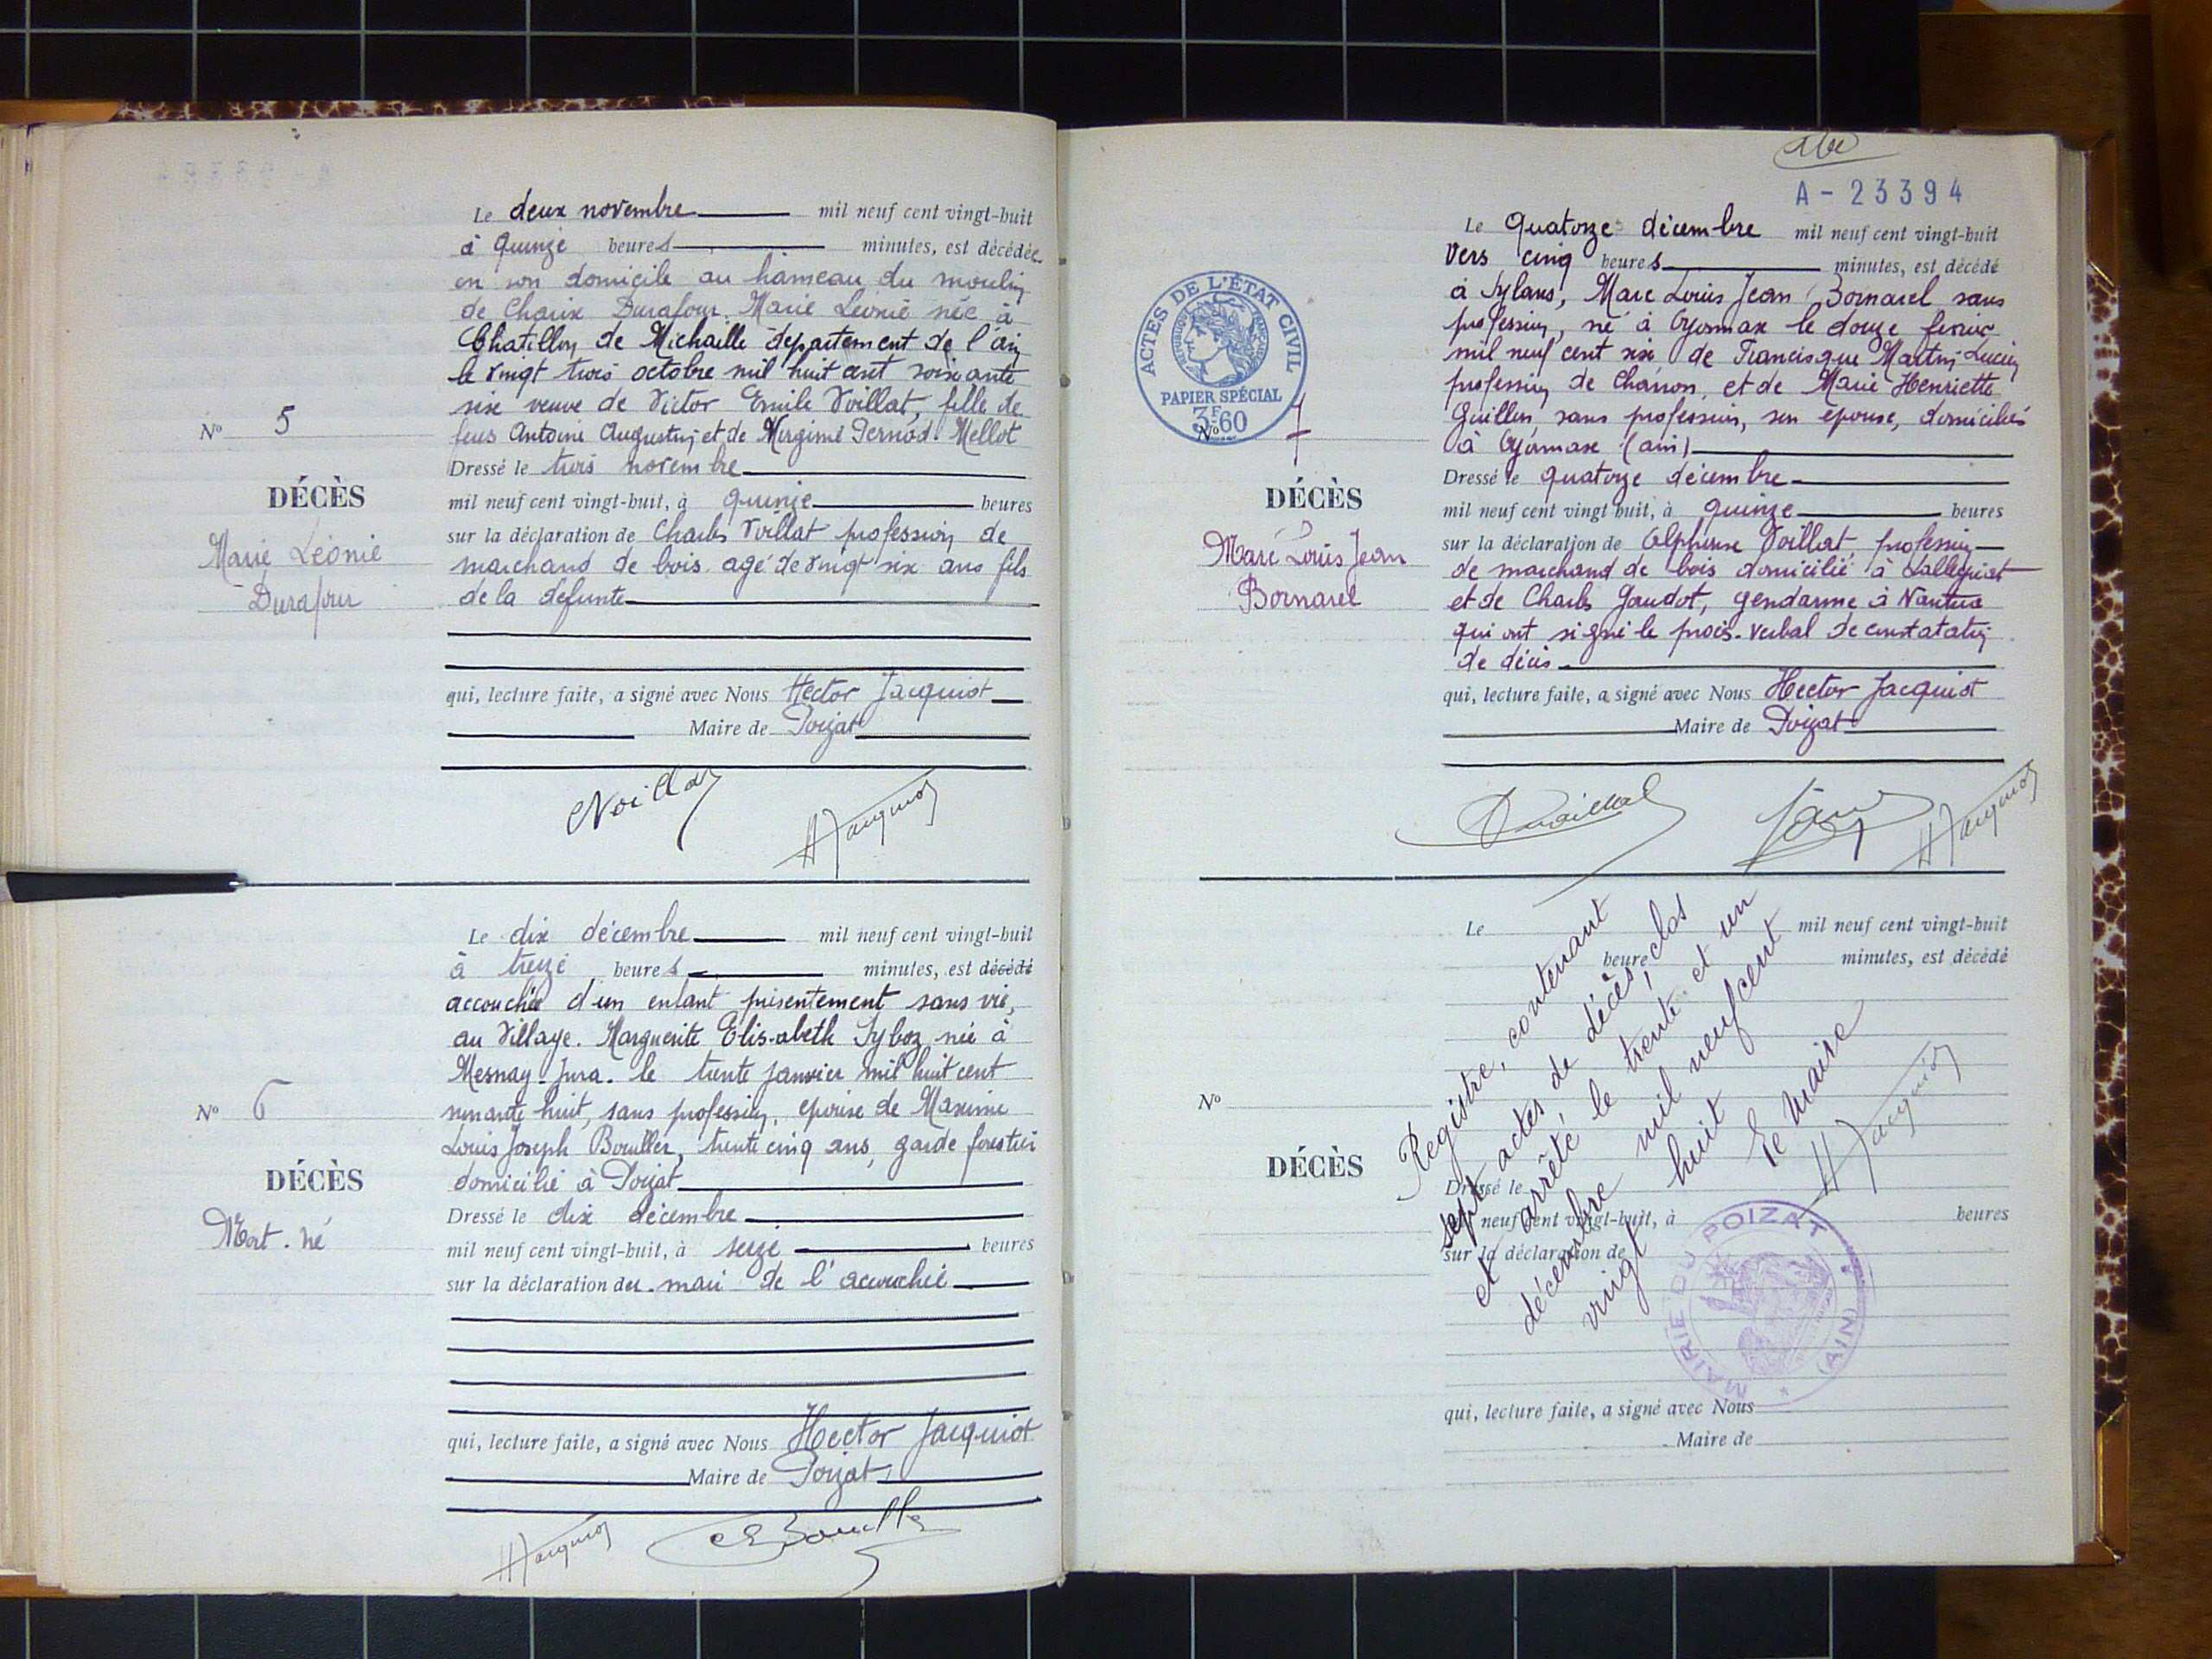 Le deux novembre mil neuf cent vingt-huit
à quinze heures minutes, est décédée
en son domicile au hameau du moulin
de Charix Durafour Marie Léonie née à
Chatillon de Michaille département de l'ain
le vingt trois octobre mil huit cent soixante
six veuve de Victor Emile Voillat, fille de
feus Antoine Augustin et de Pernod Mellot
Dressé le trois novembre
mil neuf cent vingt-huit, à quinze heures
sur la déclaration de Charles Voillat profession de
marchand de bois agé de vingt six ans fils
de la defunte
qui, lecture faite, a signé avec Nous Hector Jacquiot
Maire de Poizat
N° 5
DÉCÈS
Marie Léonie
Durafour
CVoillat
HJacquiot
Le dix décembre mil neuf cent vingt-huit
à treize heures minutes, est décédé
accouchée d'un enfant présentement sans vie,
au Village. Marguerite Elis-abeth Syboz née à
Mesnay-Jura. le trente janvier mil huit cent
nonante huit, sans profession, epouse de Maxime
Louis Joseph Bouiller, trente cinq ans, garde forestier
domicilié à Poizat
Dressé le dix décembre
mil neuf cent vingt-huit, à seize heures
sur la déclaration du mari de l'accouchée
qui, lecture faite, a signé avec Nous Hector Jacquiot
Maire de Poizat
N° 6
DÉCÈS
Mort-né
HJacquiot
A - 23394
ACTES DE L'ÉTAT CIVIL
RÉPUBLIQUE FRANÇAISE
PAPIER SPÉCIAL
3F60
Le Quatorze décembre mil neuf cent vingt-huit
Vers cinq heures minutes, est décédé
à Sylans, Marc Louis Jean Bornarel sans
profession, né à Oyonnax le douze fevrier
mil neuf cent six de Francisque Martin Lucien
profession de Charron, et de Marie Henriette
Guillon, sans profession, son epouse, domiciliés
à Oyonnax (ain)
Dressé le quatorze décembre
mil neuf cent vingt huit, à quinze heures
sur la déclaration de Alphonse Voillat, profession
de marchand de bois domicilié à Lalleyriat
et de Charles Gaudot, gendarme à Nantua
qui ont signé le procès-verbal de constatation
de décès
qui, lecture faite, a signé avec Nous Hector Jacquiot
Maire de Poizat
N° 7
DÉCÈS
Marc Louis Jean
Bornarel
HJacquiot
Le mil neuf cent vingt-huit
heure minutes, est décédé
N°
DÉCÈS
Dressé le
neuf cent vingt-huit, à heures
sur la déclaration de
qui, lecture faite, a signé avec Nous
Maire de
Registre, contenant
sept actes de décès, clos
et arrêté le trente et un
décembre mil neuf cent
vingt huit
Le Maire
HJacquiot
MAIRIE DU POIZAT
(AIN)